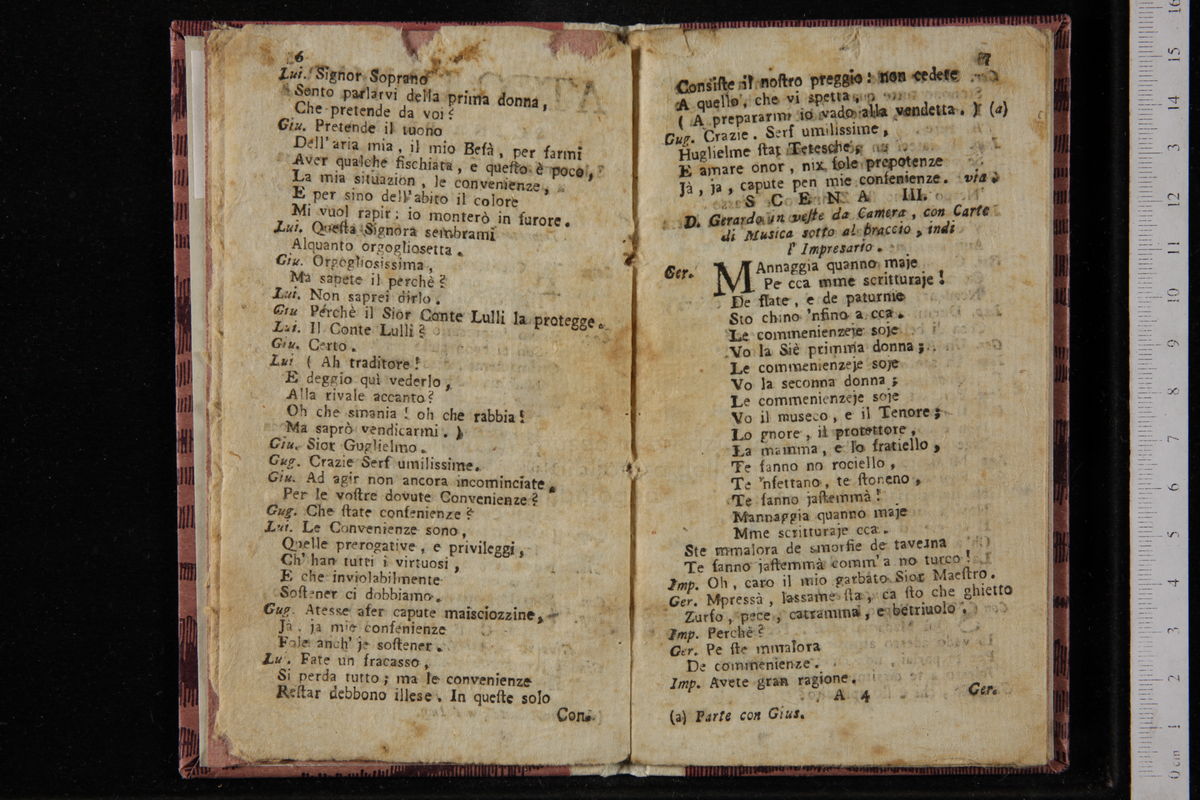 6
Lui. Signor Soprano
Sento parlarvi della prima donna,
Che pretende da voi?
Giu. Pretende il tuono
Dell'aria mia, il mio Befà, per farmi
Aver qualche fischiata, e questo è poco,
La mia situazion, le convenienze,
E per sino dell'abito il colore
Mi vuol rapir: io monterò in furore.
Lui. Questa Signora sembrami
Alquanto orgogliosetta.
Giu. Orgogliosissima,
Ma sapete il perchè?
Lui. Non saprei dirlo.
Giu Perchè il Sior Conte Lulli la protegge.
Lui. Il Conte Lulli?
Giu. Certo.
Lui ( Ah traditore!
E deggio quì vederlo,
Alla rivale accanto?
Oh che smania! oh che rabbia!
Ma saprò vendicarmi. )
Giu. Sior Guglielmo.
Gug. Crazie Serf umilissime.
Giu. Ad agir non ancora incominciate
Per le vostre dovute Convenienze?
Gug. Che state confenienze?
Lui. Le Convenienze sono,
Quelle prerogative, e privileggi,
Ch'han tutti i virtuosi,
E che inviolabilmente
Sostener ci dobbiamo.
Gug. Atesse afer capute maisciozzine,
Jà, ja mie confenienze
Fole anch'je softener.
Lui. Fate un fracasso,
Si perda tutto; ma le convenienze
Restar debbono illese. In queste solo
Con-
7
Consiste il nostro preggio: non cedete
A quello, che vi spetta,
( A prepararmi io vado alla vendetta. ) (a)
Gug. Crazie. Serf umilissime,
Huglielme stat Tetesche,
E amare onor, nix fole prepotenze
Jà, ja, capute pen mie confenienze. via.
SCENA III.
D. Gerardo in veste da Camera, con Carte
di Musica sotto al braccio, indi
l'Impresario.
Ger. MAnnaggia quanno maje
Pe cca mme scritturaje!
De flate, e de paturnie
Sto chino 'nfino a cca.
Le commenienzeje soje
Vo la Siè primma donna;
Le commenienzeje soje
Vo la seconna donna;
Le commenienzeje soje
Vo il museco, e il Tenore;
Lo gnore, il protettore,
La mamma, e lo fratiello,
Te fanno no rociello,
Te 'nfettano, te stoneno,
Te fanno jastemmà!
Mannaggia quanno maje
Mme scritturaje cca.
Ste mmalora de smorfie de taverna
Te fanno jastemmà comm'a no turco!
Imp. Oh, caro il mio garbato Sior Maestro.
Ger. Mpressà, lassame sta, ca sto che ghietto
Zurfo, pece, catramma, e betriuolo.
Imp. Perchè?
Ger. Pe ste mmalora
De commenienze.
Imp. Avete gran ragione.
A 4 Ger.
(a) Parte con Gius.
0 cm 1 2 3 4 5 6 7 8 9 10 11 12 13 14 15 16